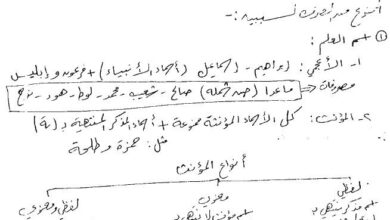 الممنوع من الصرف لسببين :-
① اسم العلم :
١- الأعجمي : إبراهيم - إسماعيل (أسماء الأنبياء) + فرعون وإبليس
ماعدا (صن شمله) صالح - شعيب - محمد - لوط - هود - نوح => مصروفات
٢- المؤنث : كل الأسماء المؤنثة ممنوعة + أسماء المذكر المنتهية بـ (ة)
مثل : حمزة وطلحة
أنواع المؤنث
لفظي معنوي لفظي ومعنوي